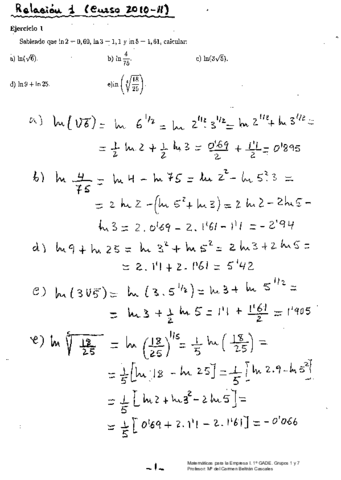 Relación 1 (Curso 2010-11)
Ejercicio 1
Sabiendo que ln 2 = 0,69, ln 3 = 1,1 y ln 5 = 1,61, calcular:
a) ln(√6). b) ln 4/75 c) ln(3√5).
d) ln 9 + ln 25. e) ln(⁵√(18/25)).
a) ln(√6) = ln 6^1/2 = ln 2^1/2 · 3^1/2 = ln 2^1/2 + ln 3^1/2 =
= 1/2 ln 2 + 1/2 ln 3 = 0'69/2 + 1'1/2 = 0'895
b) ln 4/75 = ln 4 - ln 75 = ln 2² - ln 5²·3 =
= 2 ln 2 - (ln 5² + ln 3) = 2 ln 2 - 2 ln 5 -
ln 3 = 2·0'69 - 2·1'61 - 1'1 = -2'94
d) ln 9 + ln 25 = ln 3² + ln 5² = 2 ln 3 + 2 ln 5 =
= 2·1'1 + 2·1'61 = 5'42
c) ln(3√5) = ln(3·5^1/2) = ln 3 + ln 5^1/2 =
= ln 3 + 1/2 ln 5 = 1'1 + 1'61/2 = 1'905
e) ln ⁵√(18/25) = ln (18/25)^1/5 = 1/5 ln (18/25) =
= 1/5 [ln 18 - ln 25] = 1/5 [ln 2·9 - ln 5²]
= 1/5 [ln 2 + ln 3² - 2 ln 5] =
= 1/5 [0'69 + 2·1'1 - 2·1'61] = -0'066
-1-
Matemáticas para la Empresa I. 1º GADE. Grupos 1 y 7
Profesor: Mª del Carmen Beltrán Cascales